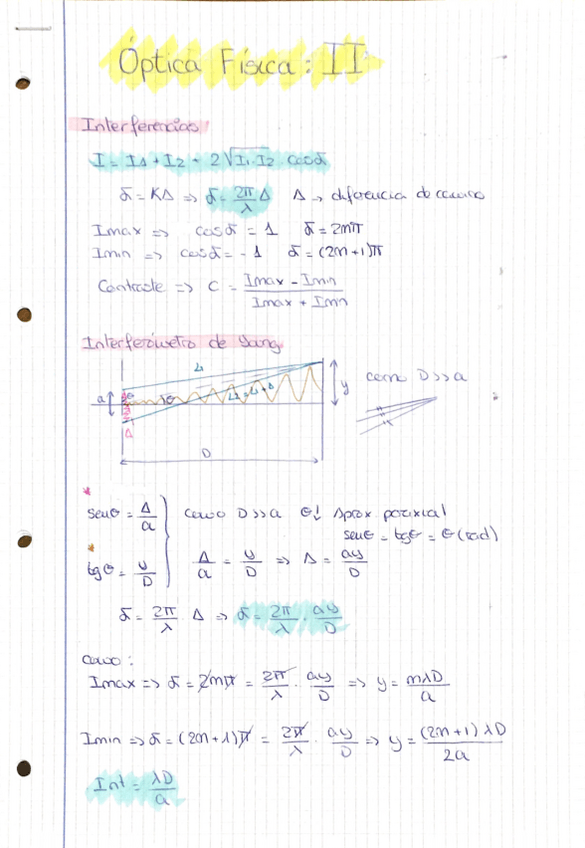 Óptica Física: II
Interferencias
I = I1 + I2 + 2√I1·I2 cosδ
δ = KΔ => δ = 2π/λ Δ   Δ → diferencia de camino
Imax => cosδ = 1   δ = 2mπ
Imin => cosδ = -1   δ = (2m+1)π
Contraste => C = (Imax - Imin)/(Imax + Imin)
Interferómetro de Yang
L1
a   θ   L2 = L1 + Δ   y   como D>>a
Δ
D
senθ = Δ/a   como D>>a   θ↓   Aprox. paraxial
senθ = tgθ = θ(rad)
tgθ = y/D   Δ/a = y/D => Δ = ay/D
δ = 2π/λ Δ => δ = 2π/λ · ay/D
como:
Imax => δ = 2mπ = 2π/λ · ay/D => y = mλD/a
Imin => δ = (2m+1)π = 2π/λ · ay/D => y = (2m+1)λD/2a
Int = λD/a